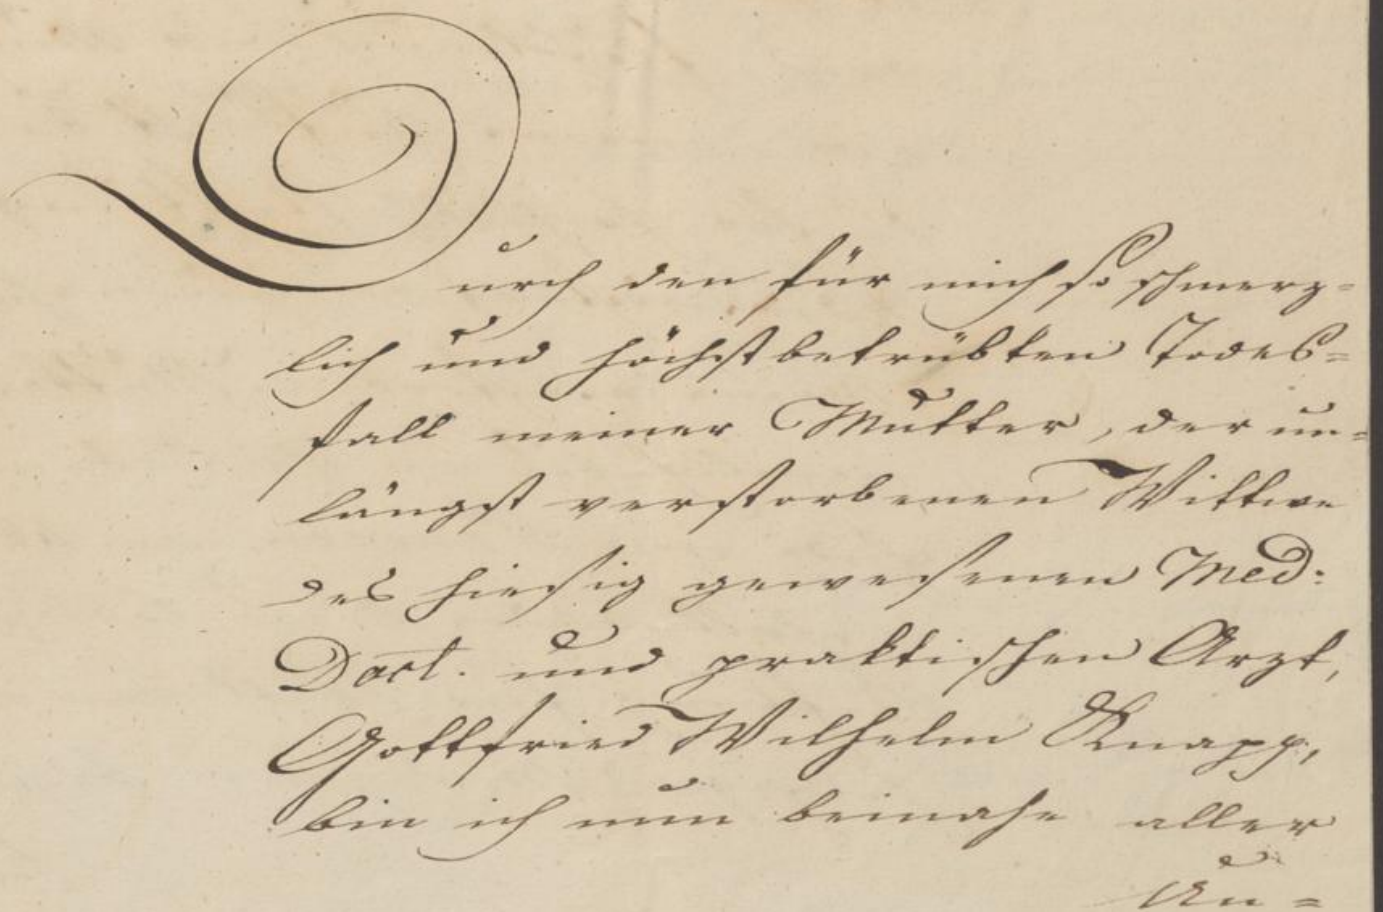 Durch den für mich so schmerz=
lich und höchstbetrübten Todes=
fall meiner Mutter, der un=
längst verstorbenen Wittwe
des hiesig gewesenen Med:
Doct. und praktischen Arzt,
Gottfried Wilhelm Knapp,
bin ich nun beinahe aller
Un=